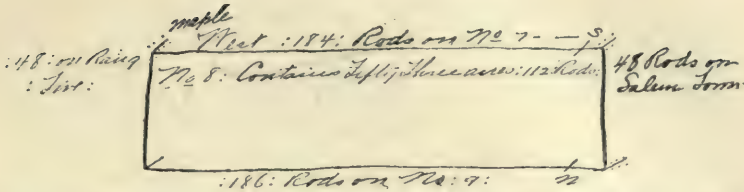 maple
West :184: Rods on No 7 - — S
:48: on Raing
: Five :
No 8: Contains Fifty Three acres :112 Rods:
48 Rods on
Salem Town
:186: Rods on No: 9: n